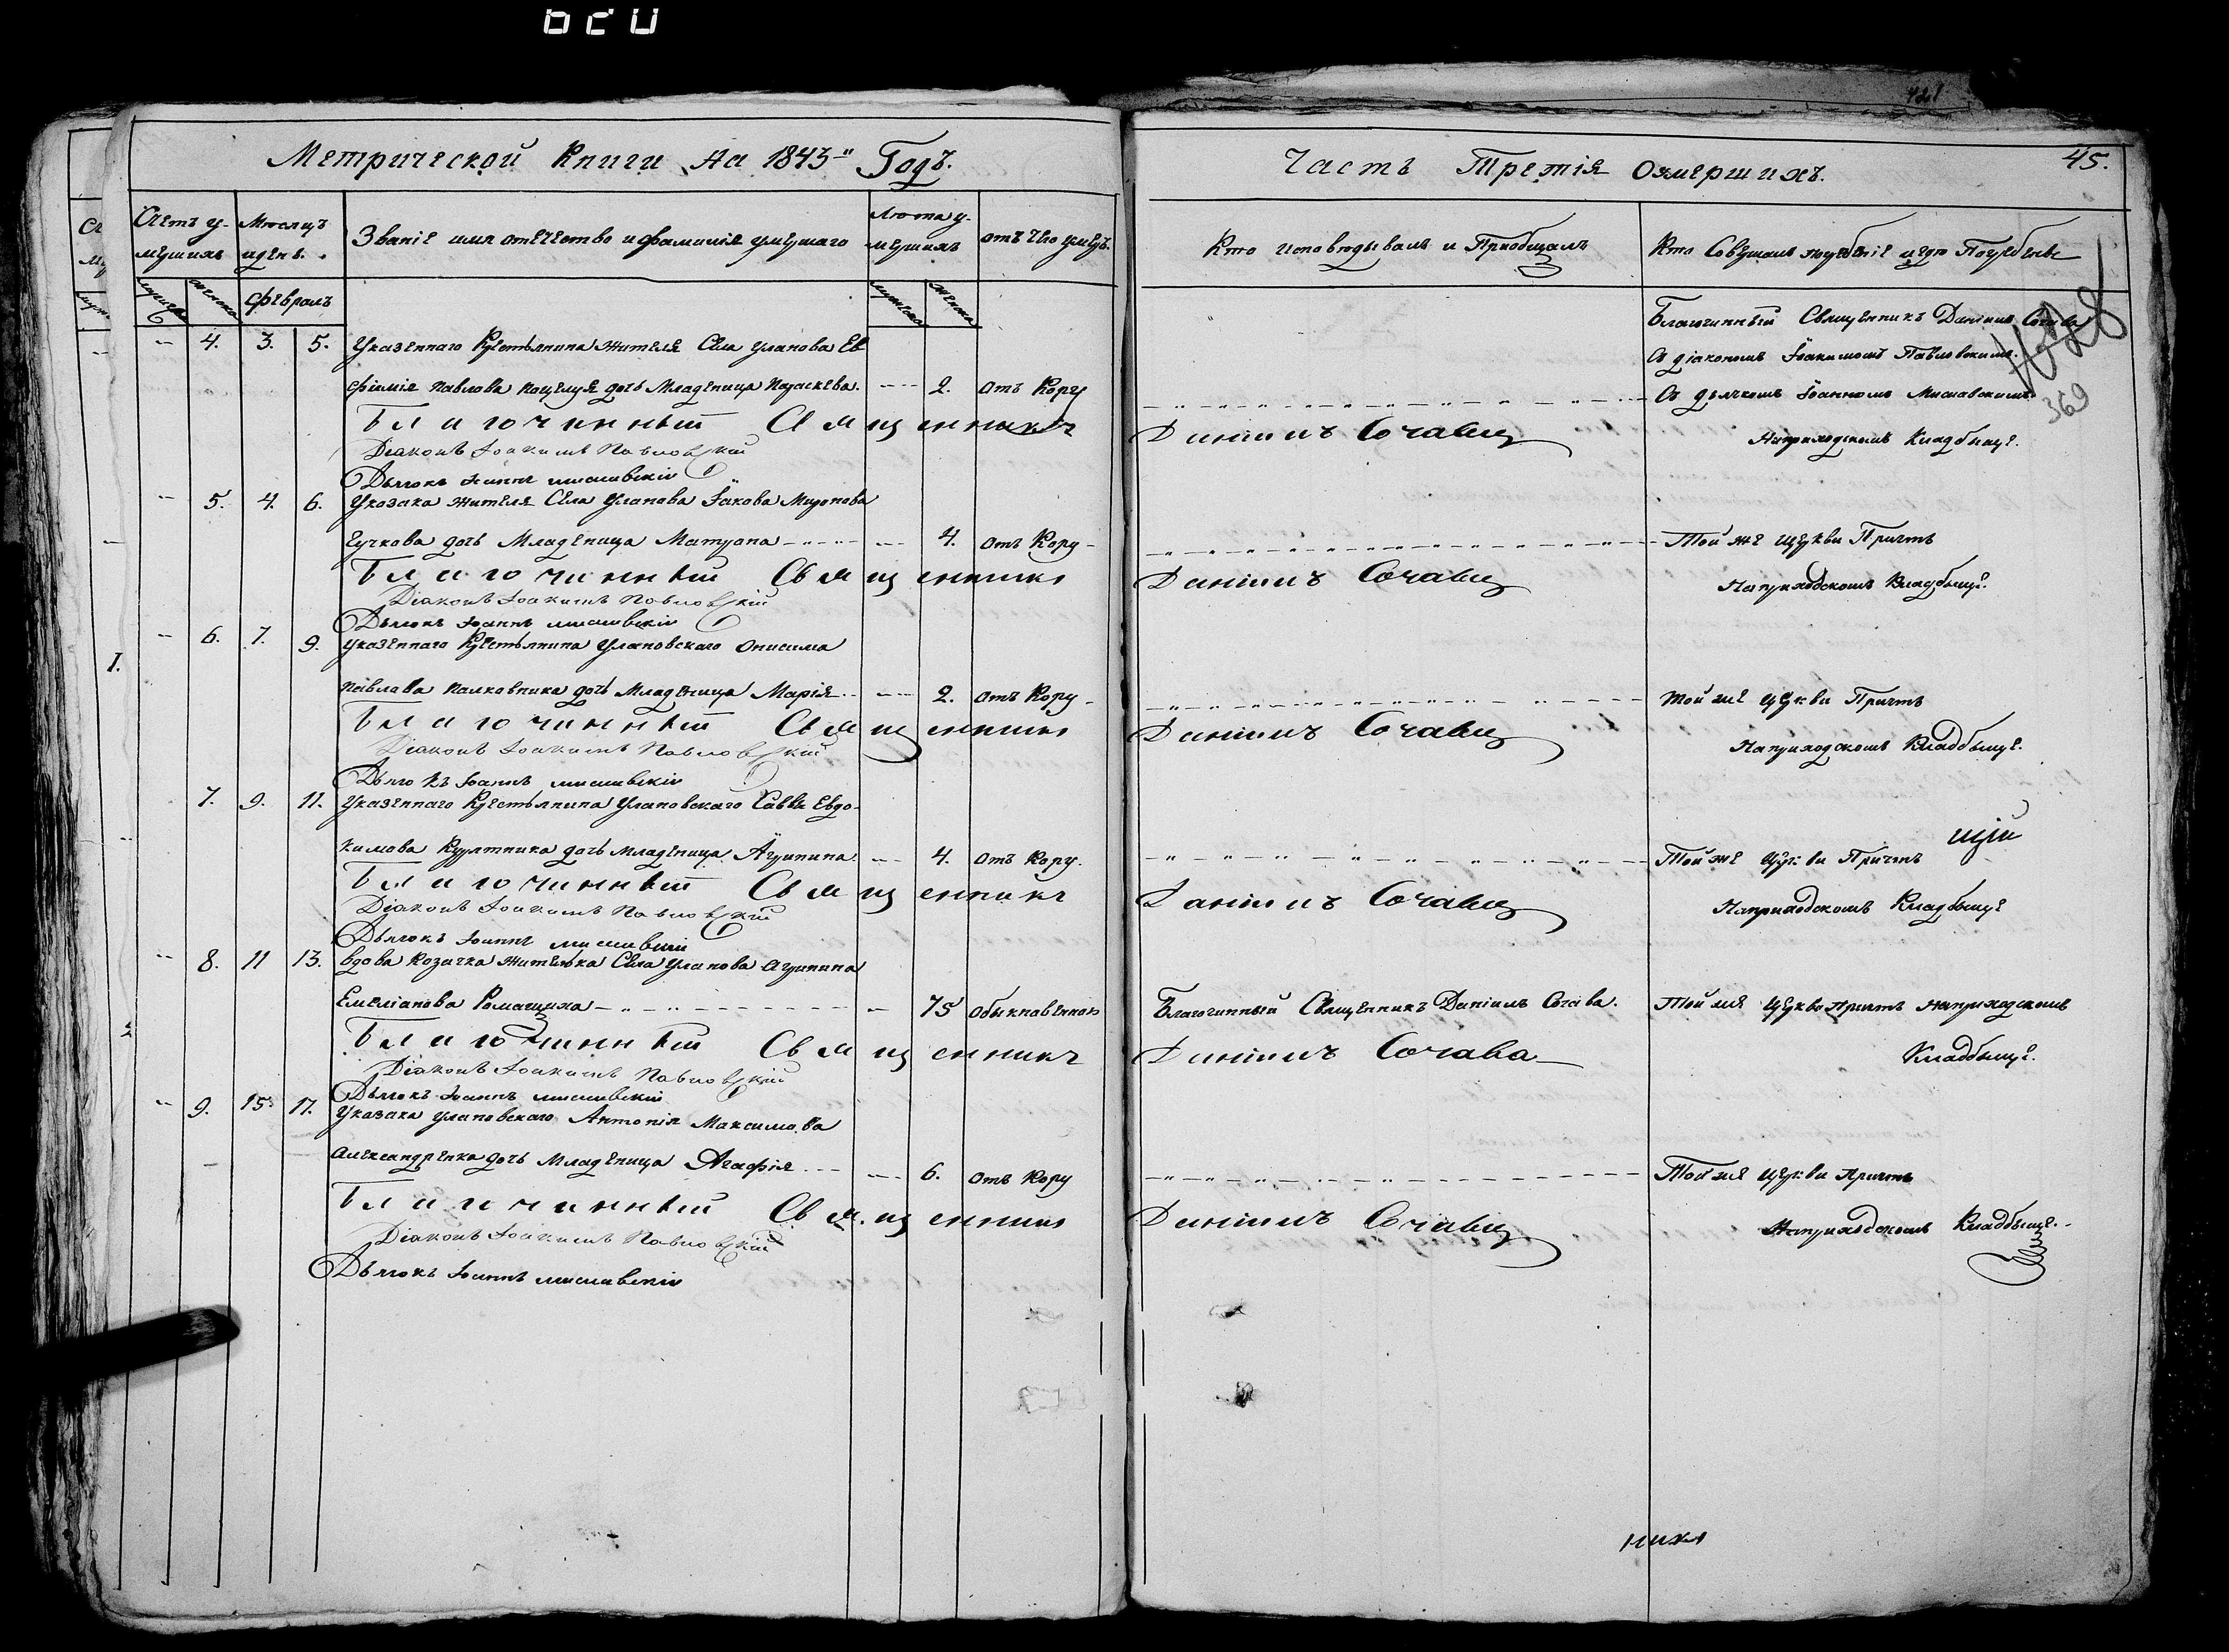 421
Метрической Книги На 1843й Годъ.
Часть Третія Оумершихъ.
45.
Счетъ у-
мершихъ
Месяцъ
идень.
Званіе имя отечество и фамилія умершаго
Лета у-
мершихъ
отъ чего умеръ.
Кто исповедывалъ и Приобщалъ
Кто Совершалъ погребеніе и где Погребены
мужеска
женска
февраль
мужеска
женска
4. 3. 5. Указеннаго Крестьянина жителя Села Уланова Ев
фимія Павлова Коцелуя дочь Младеница Параскева. 2. Отъ Кору
Благочинный Священникъ Даніилъ Сочава
Съ діакономъ Іоакимомъ Павловскимъ.
Съ дьячкомъ Іоанномъ Миславскимъ
На приходскомъ Кладбыще.
369
Благочинный Священникъ Даніилъ Сочава
Діаконъ Іоакимъ Павловскій
Дьячокъ Іоаннъ Миславскій
5. 4. 6. Указака жителя Села Уланова Іакова Миронова
Гучкова дочь Младеница Матрона 4. Отъ Кору
Той же Церкви Причтъ
На приходскомъ Кладбыще.
Благочинный Священникъ Даніилъ Сочава
Діаконъ Іоакимъ Павловскій
Дьячокъ Іоаннъ Миславскій
6. 7. 9. Указеннаго Крестьянина Улановскаго Онисима
Павлова Палковника дочь Младеница Марія 2. Отъ Кору
Той же Церкви Причтъ
На приходскомъ Кладбыще.
Благочинный Священникъ Даніилъ Сочава
Діаконъ Іоакимъ Павловскій
Дьячокъ Іоаннъ Миславскій
7. 9. 11. Указеннаго Крестьянина Улановскаго Саввы Евдо-
кимова дочь Младеница Агрипина 4. Отъ Кору.
Той же Церкви Причтъ
На приходскомъ Кладбыще
Благочинный Священникъ Даніилъ Сочава
Діаконъ Іоакимъ Павловскій
Дьячокъ Іоаннъ Миславскій
8. 11 13. Вдова Козачка Жителька Села Уланова Агрипина
Емеліанова Ромащиха 75 Обыкновенной
Благочинный Священникъ Даніилъ Сочава.
Той же Церкви Причтъ На приходскомъ
Кладбыще.
Благочинный Священникъ Даніилъ Сочава
Діаконъ Іоакимъ Павловскій
Дьячокъ Іоаннъ Миславскій
9. 15. 17. Указака Улановскаго Антонія Максимова
Александренка дочь Младеница Агафія 6. Отъ Кору
Той же Церкви Причтъ
На приходскомъ Кладбыще.
Благочинный Священникъ Даніилъ Сочава
Діаконъ Іоакимъ Павловскій
Дьячокъ Іоаннъ Миславскій